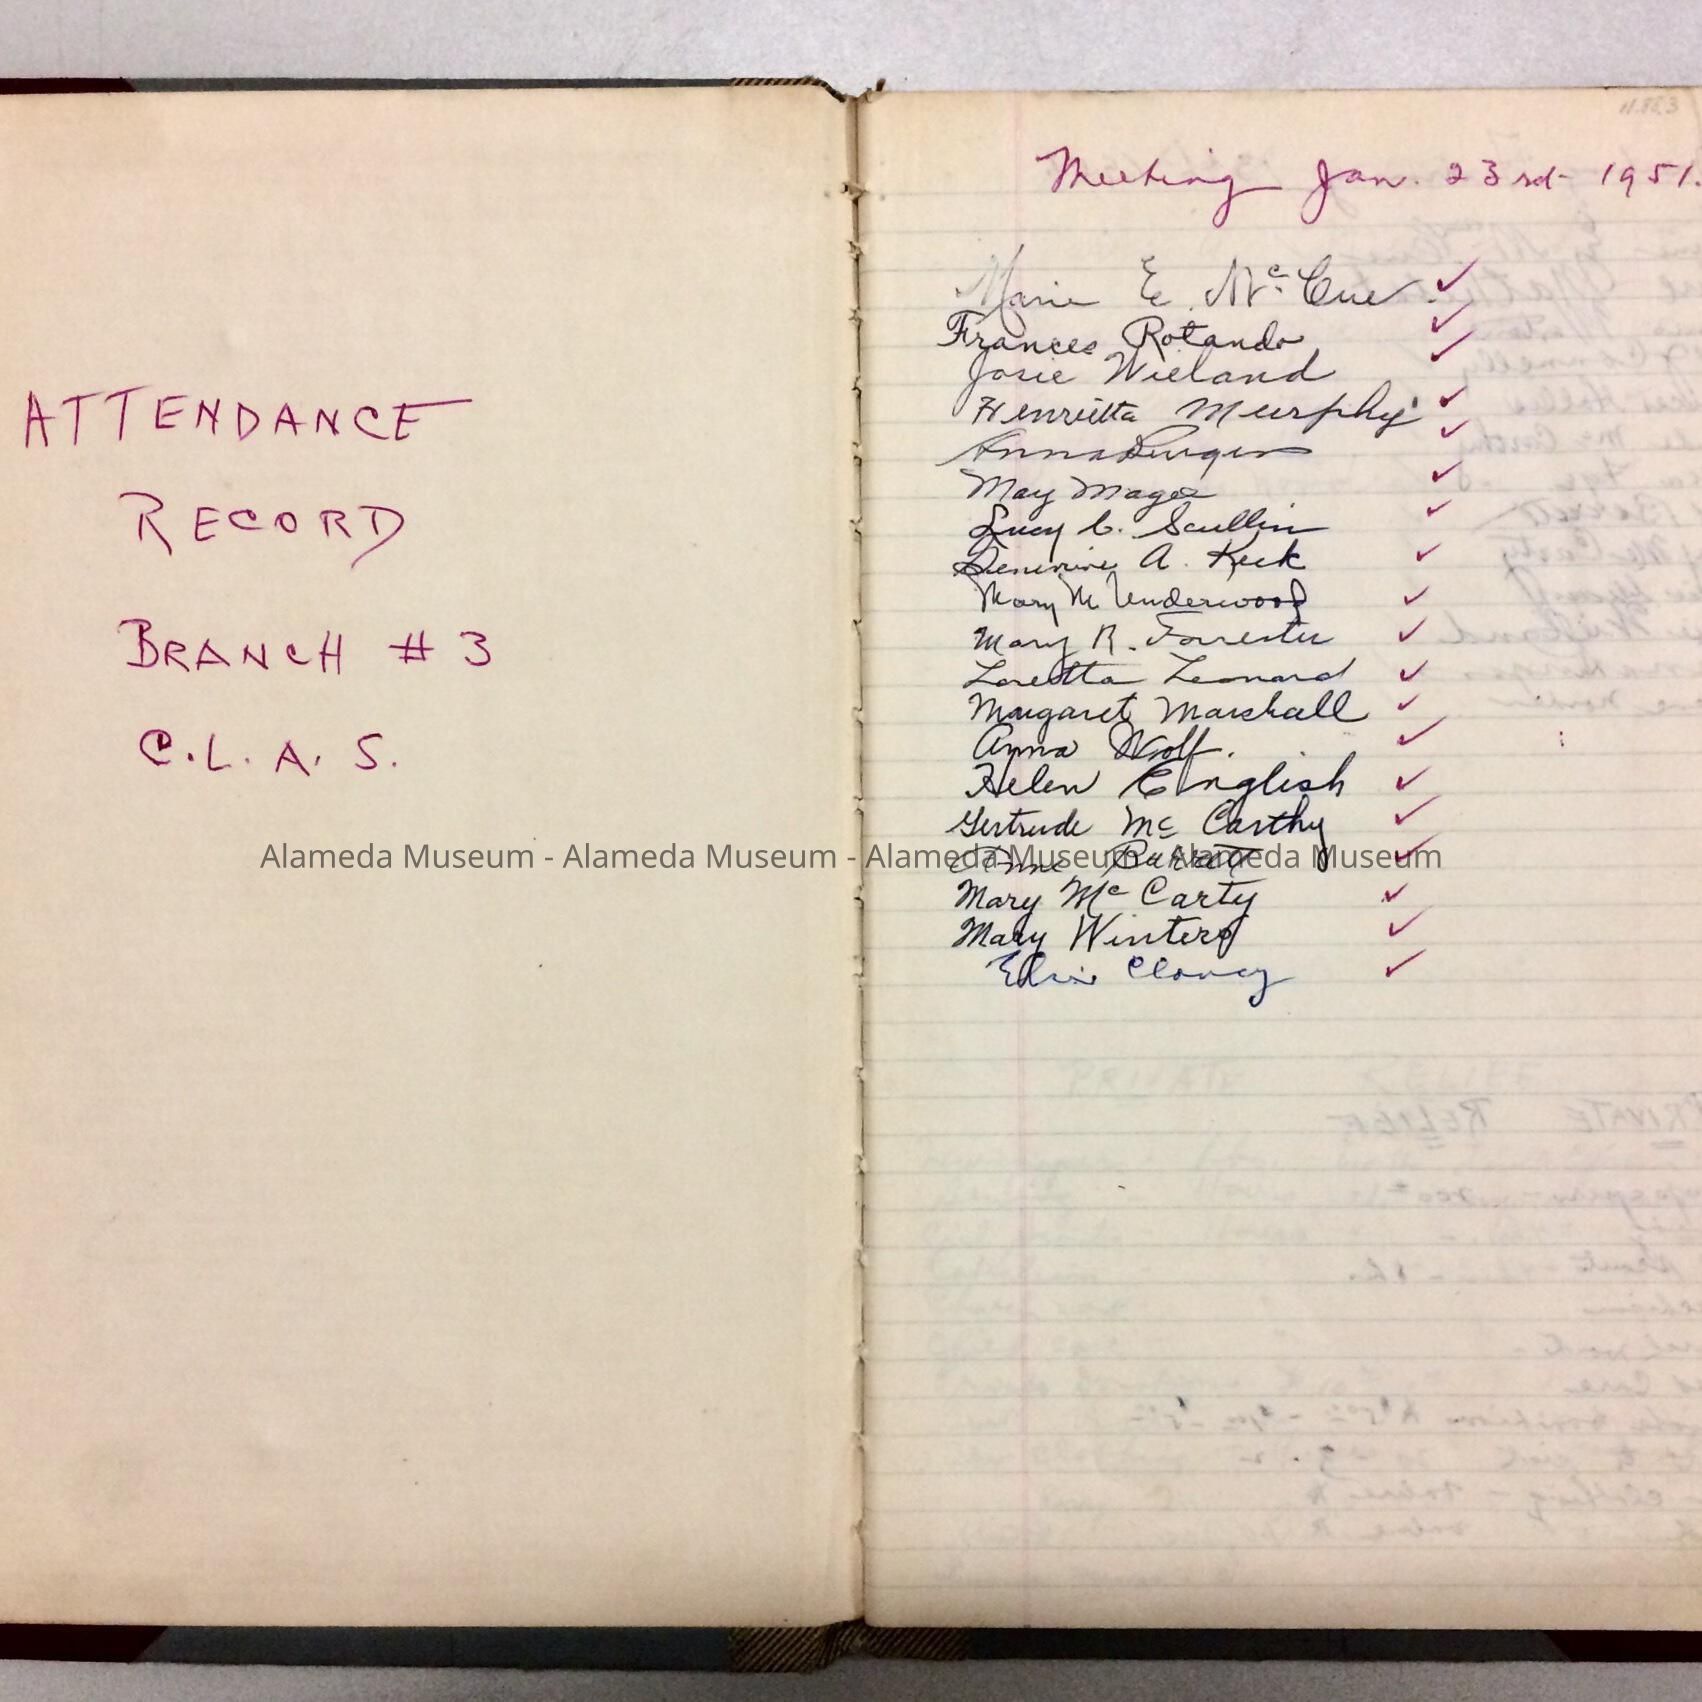 ATTENDANCE
RECORD
BRANCH # 3
C.L.A.S.
Meeting Jan. 23rd- 1951.
Marie E. McCue
Frances Rotando
Josie Wieland
Henrietta Murphy
Anna
May Magee
Lucy C. Scullin
Genevieve A. Keck
Mary M Underwood
Mary R. Forrester
Loretta Leonard
Margaret Marshall
Anna Wolf.
Helen English
Gertrude McCarthy
Anne Barrett
Mary McCarty
Mary Winters
Elsie Clancy
Alameda Museum - Alameda Museum - Alameda Museum - Alameda Museum